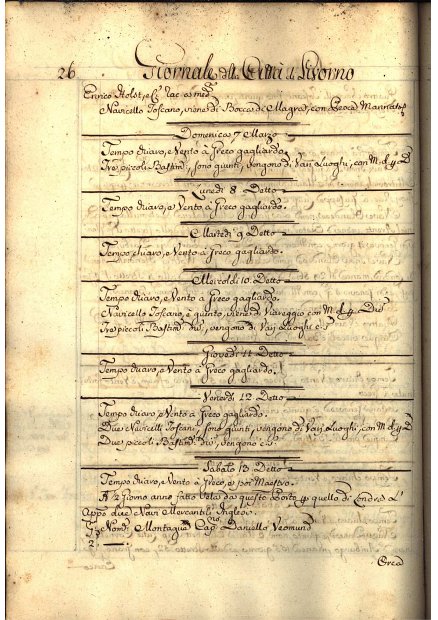 26 Giornale della Città di Livorno
Enrico Holst, e
Navicello Toscano, viene di Bocca di Magra, con
Domenica 7 Marzo
Tempo chiaro, e Vento à Greco gagliardo.
Tre piccoli Bastim.ti, sono giunti, vengono di Varij Luoghi, con M. d. 4. D
Lunedi 8. Detto
Tempo chiaro, e Vento à Greco gagliardo.
Martedi 9 Detto
Tempo chiaro, e Vento à Greco gagliardo.
Mercoldi 10. Detto
Tempo chiaro, e Vento à Greco gagliardo.
Navicello Toscano, è giunto, viene di Viareggio con M. d. 4. Div
Tre piccoli Bastim.ti div, vengono di Varij Luoghi c.s.
Giovedi 11 Detto
Tempo chiaro, e Vento à Greco gagliardo.
Venerdi 12 Detto
Tempo chiaro, e Vento à Greco gagliardo.
Due Navicelli Toscani, sono giunti, vengono di Varij Luoghi, con M. d. 4. D
Due piccoli Bastim.ti div, vengono c.s.
Sabato 13 Detto
Tempo chiaro, e Vento à Greco, e poi Maestro.
A 2 giorno anno fatto Vela da questo Porto p quello di Londra L'
Appo due Navi Mercantili Inglesi.
Nom.e Montague Cap. Daniello
2